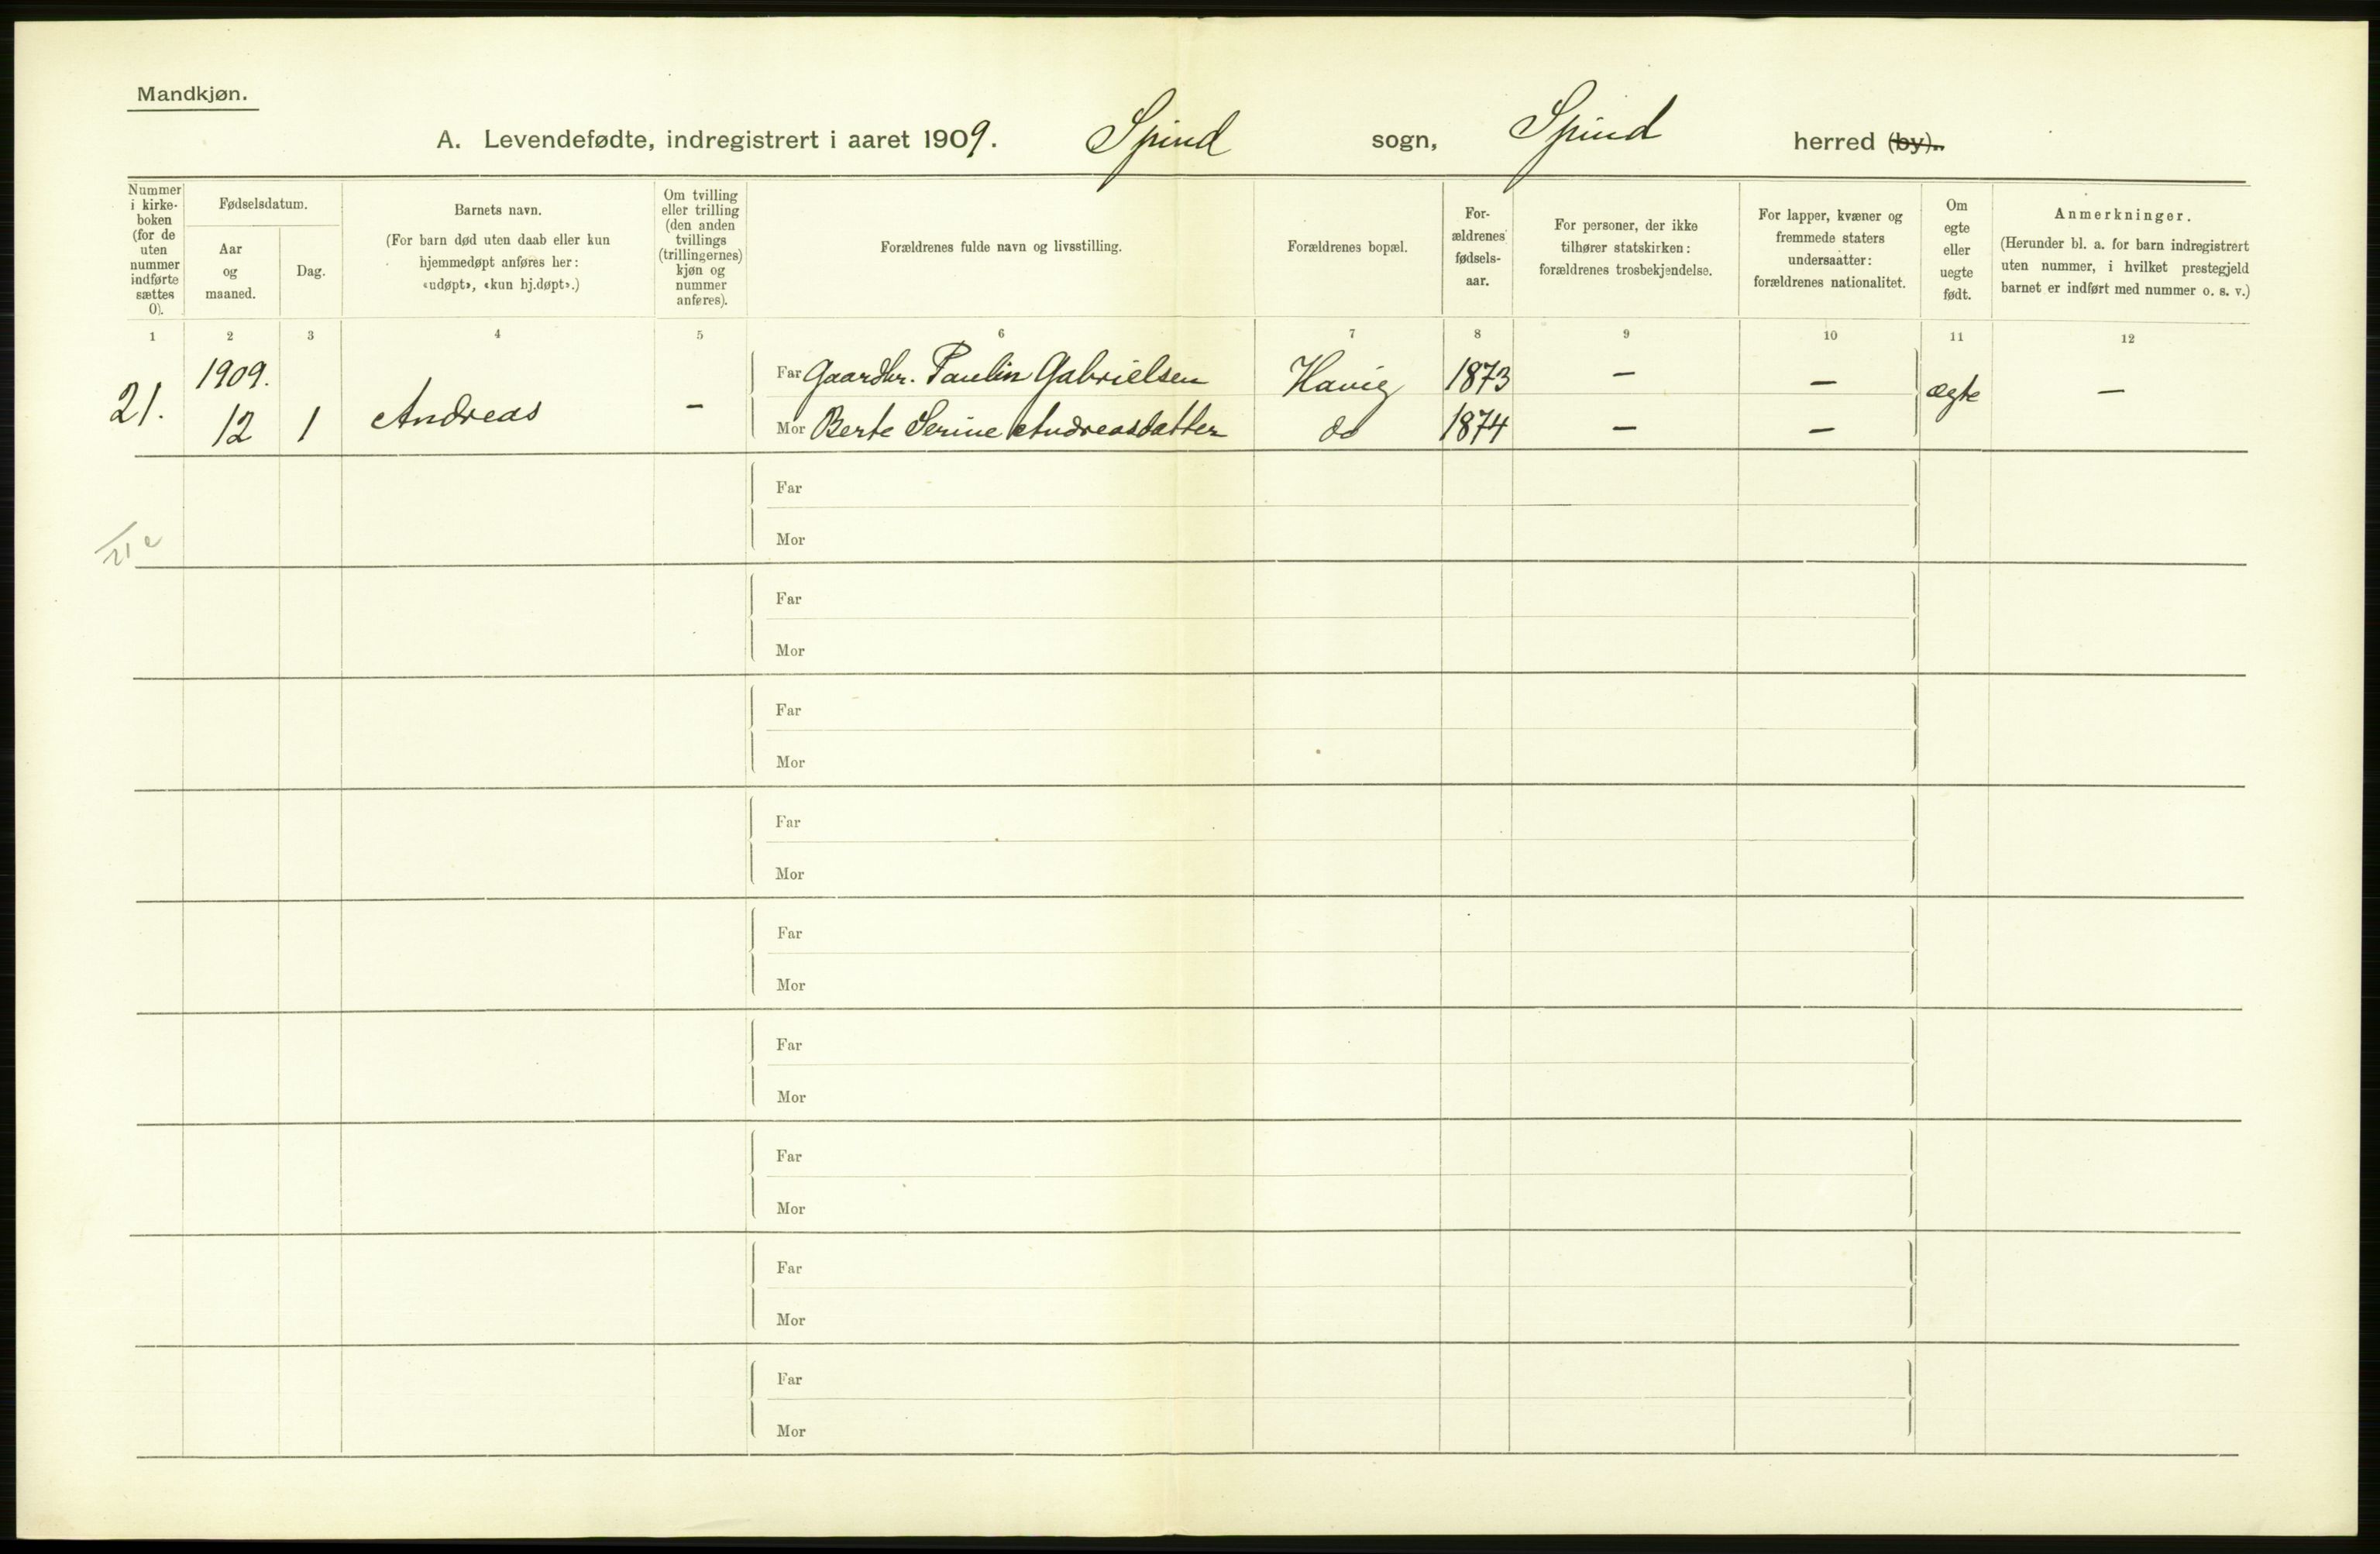 Mandkjøn.
A. Levendefødte, indregistrert i aaret 1909. Spind sogn, Spind herred (by).
Nummer i kirke-boken (for de uten nummer indførte sættes 0).
Fødselsdatum.
Aar og maaned.
Dag.
Barnets navn.
(For barn død uten daab eller kun hjemmedøpt anføres her: «udøpt», «kun hj.døpt».)
Om tvilling eller trilling (den anden tvillings (trillingernes) kjøn og nummer anføres).
Forældrenes fulde navn og livsstilling.
Forældrenes bopæl.
For-ældrenes fødsels-aar.
For personer, der ikke tilhører statskirken: forældrenes trosbekjendelse.
For lapper, kvæner og fremmede staters undersaatter: forældrenes nationalitet.
Om egte eller uegte født.
Anmerkninger.
(Herunder bl. a. for barn indregistrert uten nummer, i hvilket prestegjeld barnet er indført med nummer o. s. v.)
1 2 3 4 5 6 7 8 9 10 11 12
1909.
Far Gaardbr. Paulin Gabrielsen Havig 1873 – –
21. 12 1 Andreas – ægte –
Mor Berte Serine Andreasdatter do 1874 – –
Far
Mor
Far
Mor
Far
Mor
Far
Mor
Far
Mor
Far
Mor
Far
Mor
Far
Mor
Far
Mor